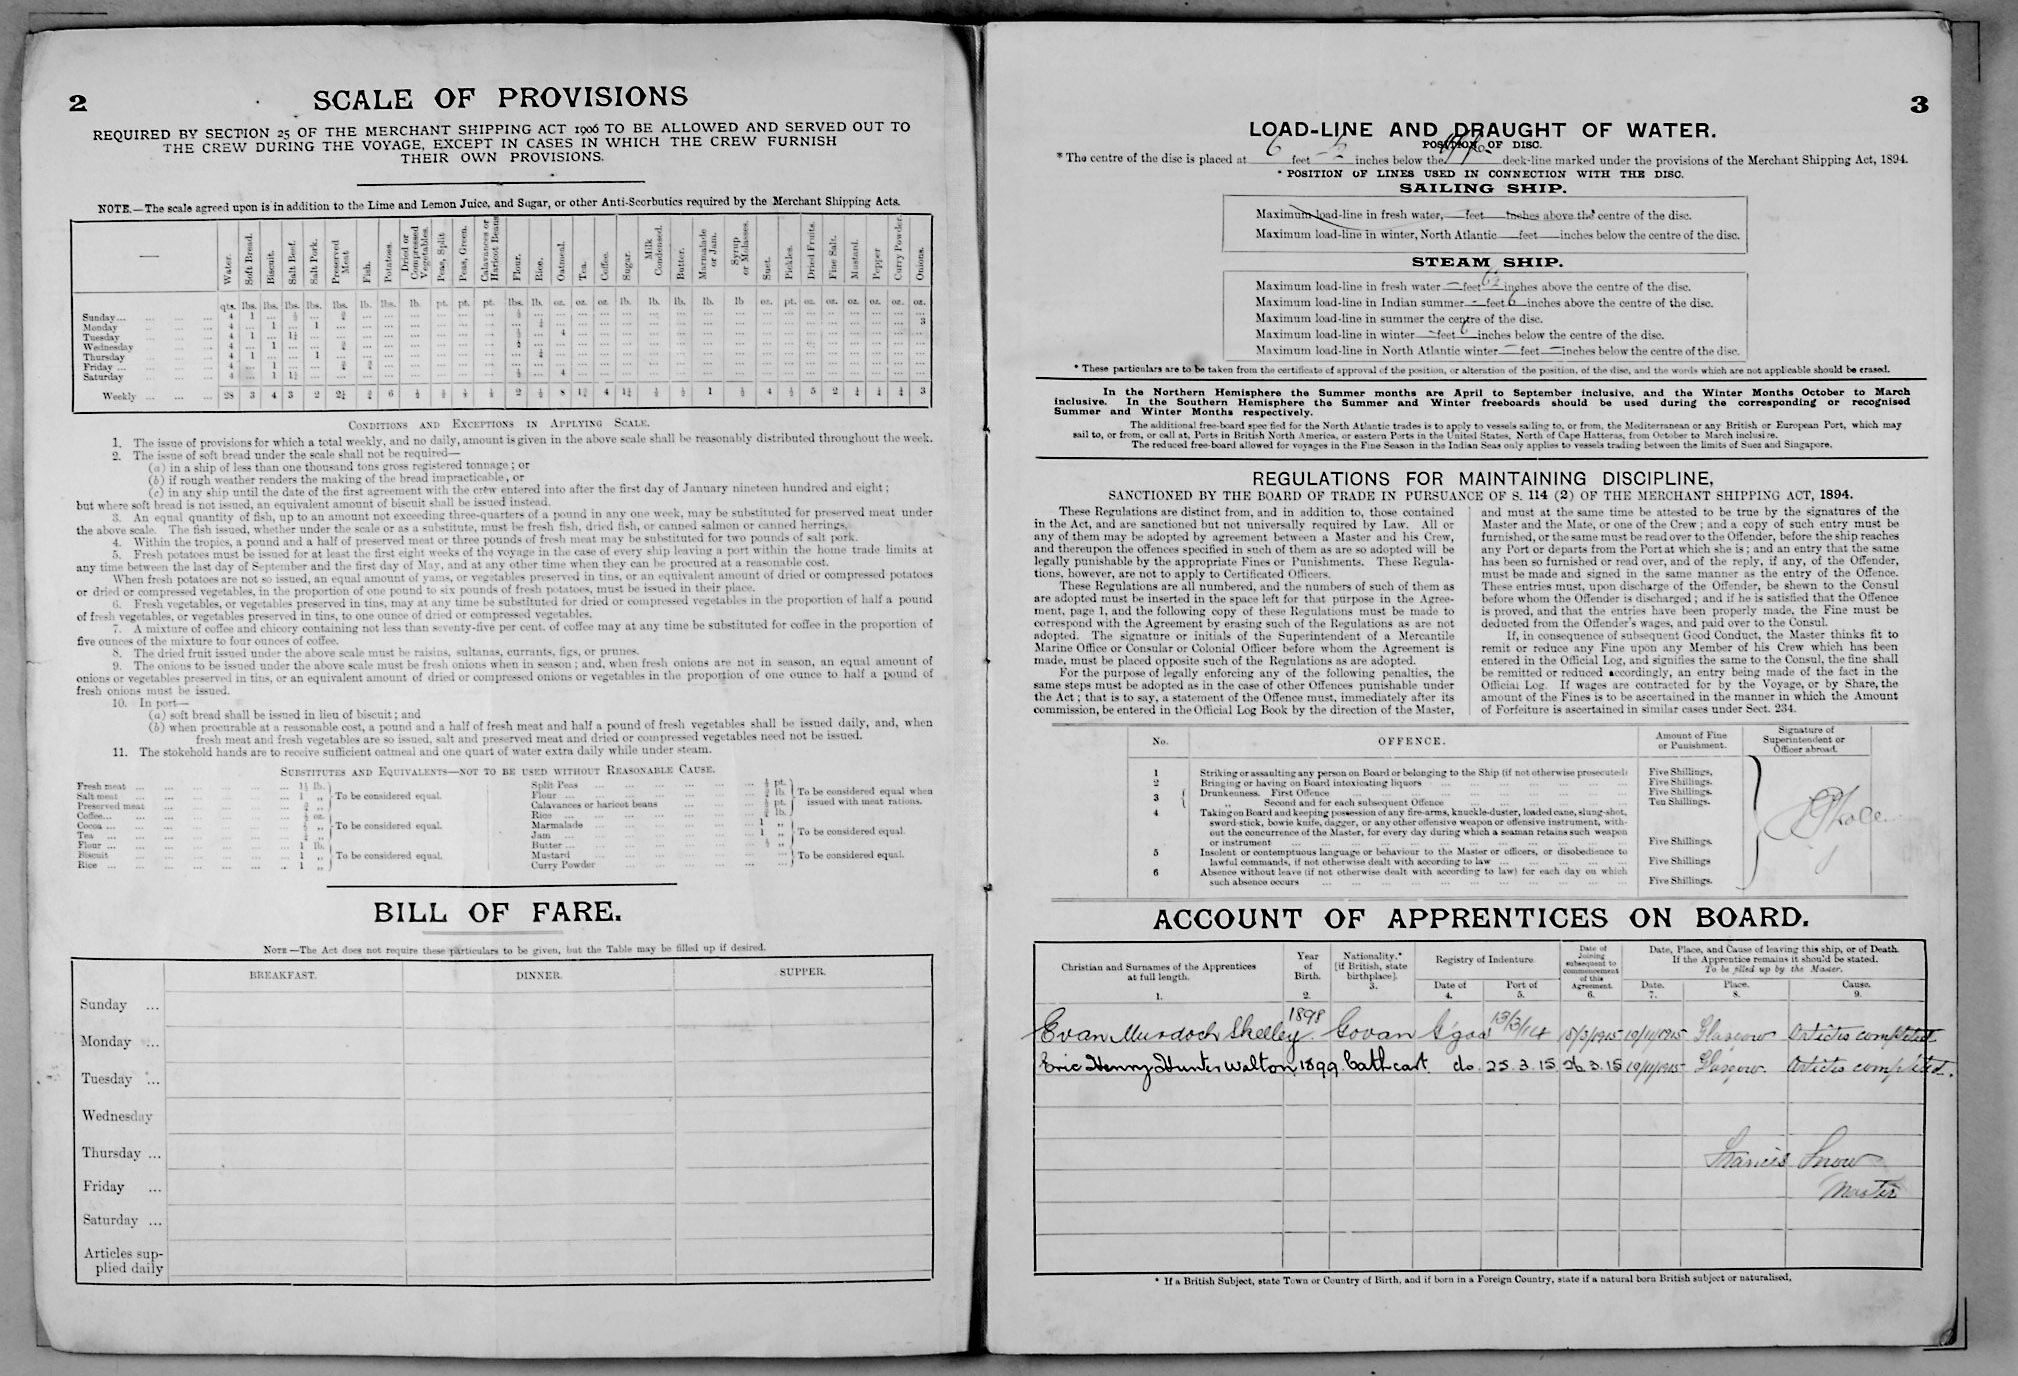 2
SCALE OF PROVISIONS
REQUIRED BY SECTION 25 OF THE MERCHANT SHIPPING ACT 1906 TO BE ALLOWED AND SERVED OUT TO
THE CREW DURING THE VOYAGE, EXCEPT IN CASES IN WHICH THE CREW FURNISH
THEIR OWN PROVISIONS.
NOTE.—The scale agreed upon is in addition to the Lime and Lemon Juice, and Sugar, or other Anti-Scorbutics required by the Merchant Shipping Acts.
— Water. Soft Bread. Biscuit. Salt Beef. Salt Pork. Preserved Meat Fish. Potatoes. Dried or Compressed Vegetables. Peas, Split Peas, Green. Calavances or Haricot Beans Flour. Rice. Oatmeal. Tea. Coffee. Sugar. Milk Condensed. Butter. Marmalade or Jam. Syrup or Molasses. Suet. Pickles. Dried Fruits. Fine Salt. Mustard. Pepper Curry Powder. Onions.
qts. lbs. lbs. lbs. lbs. lbs. lb. lbs. lb. pt. pt. pt. lbs. lb. oz. oz. oz. lb. lb. lb. lb. lb oz. pt. oz. oz. oz. oz. oz. oz.
Sunday... 4 1 ... ½ ...
Monday 4 ... 1 ... 1 ... 3
Tuesday 4 1 ... 1½ ... 4
Wednesday 4 ... 1
Thursday 4 1 ... ... 1
Friday ... 4 ... 1
Saturday 4 ... 1 1½ ... 4
Weekly 28 3 4 3 2 2¼ ¾ 6 ½ 2 ½ 8 1¾ 4 1¼ 1 ½ 4 ½ 5 2 ¼ ¼ ¼ 3
CONDITIONS AND EXCEPTIONS IN APPLYING SCALE.
1. The issue of provisions for which a total weekly, and no daily, amount is given in the above scale shall be reasonably distributed throughout the week.
2. The issue of soft bread under the scale shall not be required—
(a) in a ship of less than one thousand tons gross registered tonnage; or
(b) if rough weather renders the making of the bread impracticable, or
(c) in any ship until the date of the first agreement with the crew entered into after the first day of January nineteen hundred and eight;
but where soft bread is not issued, an equivalent amount of biscuit shall be issued instead.
3. An equal quantity of fish, up to an amount not exceeding three-quarters of a pound in any one week, may be substituted for preserved meat under
the above scale. The fish issued, whether under the scale or as a substitute, must be fresh fish, dried fish, or canned salmon or canned herrings.
4. Within the tropics, a pound and a half of preserved meat or three pounds of fresh meat may be substituted for two pounds of salt pork.
5. Fresh potatoes must be issued for at least the first eight weeks of the voyage in the case of every ship leaving a port within the home trade limits at
any time between the last day of September and the first day of May, and at any other time when they can be procured at a reasonable cost.
When fresh potatoes are not so issued, an equal amount of yams, or vegetables preserved in tins, or an equivalent amount of dried or compressed potatoes
or dried or compressed vegetables, in the proportion of one pound to six pounds of fresh potatoes, must be issued in their place.
6. Fresh vegetables, or vegetables preserved in tins, may at any time be substituted for dried or compressed vegetables in the proportion of half a pound
of fresh vegetables, or vegetables preserved in tins, to one ounce of dried or compressed vegetables.
7. A mixture of coffee and chicory containing not less than seventy-five per cent. of coffee may at any time be substituted for coffee in the proportion of
five ounces of the mixture to four ounces of coffee.
8. The dried fruit issued under the above scale must be raisins, sultanas, currants, figs, or prunes.
9. The onions to be issued under the above scale must be fresh onions when in season; and, when fresh onions are not in season, an equal amount of
onions or vegetables preserved in tins, or an equivalent amount of dried or compressed onions or vegetables in the proportion of one ounce to half a pound of
fresh onions must be issued.
10. In port—
(a) soft bread shall be issued in lieu of biscuit; and
(b) when procurable at a reasonable cost, a pound and a half of fresh meat and half a pound of fresh vegetables shall be issued daily, and, when
fresh meat and fresh vegetables are so issued, salt and preserved meat and dried or compressed vegetables need not be issued.
11. The stokehold hands are to receive sufficient oatmeal and one quart of water extra daily while under steam.
SUBSTITUTES AND EQUIVALENTS—NOT TO BE USED WITHOUT REASONABLE CAUSE.
Fresh meat ... 1½ lb.
Salt meat ... 1 „ To be considered equal.
Preserved meat ... ¾ „
Coffee... ½ oz.
Cocoa ... To be considered equal.
Tea ... ¼ „
Flour ... 1 lb.
Biscuit ... 1 „ To be considered equal.
Rice ... 1 „
Split Peas ... ½ pt.
Flour ... ½ lb. To be considered equal when
Calavances or haricot beans ... ½ pt. issued with meat rations.
Rice ... ½ lb.
Marmalade ... 1 „
Jam ... 1 „ To be considered equal.
Butter ... ½ „
Mustard ... To be considered equal.
Curry Powder
BILL OF FARE.
NOTE—The Act does not require these particulars to be given, but the Table may be filled up if desired.
BREAKFAST. DINNER. SUPPER.
Sunday ...
Monday ...
Tuesday ...
Wednesday
Thursday ...
Friday ...
Saturday ...
Articles sup-
plied daily
3
LOAD-LINE AND DRAUGHT OF WATER.
POSITION OF DISC.
* The centre of the disc is placed at 6 feet ½ inches below the deck-line marked under the provisions of the Merchant Shipping Act, 1894.
* POSITION OF LINES USED IN CONNECTION WITH THE DISC.
SAILING SHIP.
Maximum load-line in fresh water, feet inches above the centre of the disc.
Maximum load-line in winter, North Atlantic feet inches below the centre of the disc.
STEAM SHIP.
Maximum load-line in fresh water — feet 6½ inches above the centre of the disc.
Maximum load-line in Indian summer - feet 6 inches above the centre of the disc.
Maximum load-line in summer the centre of the disc.
Maximum load-line in winter — feet 6 inches below the centre of the disc.
Maximum load-line in North Atlantic winter — feet — inches below the centre of the disc.
* These particulars are to be taken from the certificate of approval of the position, or alteration of the position, of the disc, and the words which are not applicable should be erased.
In the Northern Hemisphere the Summer months are April to September inclusive, and the Winter Months October to March
inclusive. In the Southern Hemisphere the Summer and Winter freeboards should be used during the corresponding or recognised
Summer and Winter Months respectively.
The additional free-board specified for the North Atlantic trades is to apply to vessels sailing to, or from, the Mediterranean or any British or European Port, which may
sail to, or from, or call at, Ports in British North America, or eastern Ports in the United States, North of Cape Hatteras, from October to March inclusive.
The reduced free-board allowed for voyages in the Fine Season in the Indian Seas only applies to vessels trading between the limits of Suez and Singapore.
REGULATIONS FOR MAINTAINING DISCIPLINE,
SANCTIONED BY THE BOARD OF TRADE IN PURSUANCE OF S. 114 (2) OF THE MERCHANT SHIPPING ACT, 1894.
These Regulations are distinct from, and in addition to, those contained
in the Act, and are sanctioned but not universally required by Law. All or
any of them may be adopted by agreement between a Master and his Crew,
and thereupon the offences specified in such of them as are so adopted will be
legally punishable by the appropriate Fines or Punishments. These Regula-
tions, however, are not to apply to Certificated Officers.
These Regulations are all numbered, and the numbers of such of them as
are adopted must be inserted in the space left for that purpose in the Agree-
ment, page 1, and the following copy of these Regulations must be made to
correspond with the Agreement by erasing such of the Regulations as are not
adopted. The signature or initials of the Superintendent of a Mercantile
Marine Office or Consular or Colonial Officer before whom the Agreement is
made, must be placed opposite such of the Regulations as are adopted.
For the purpose of legally enforcing any of the following penalties, the
same steps must be adopted as in the case of other Offences punishable under
the Act; that is to say, a statement of the Offence must, immediately after its
commission, be entered in the Official Log Book by the direction of the Master,
and must at the same time be attested to be true by the signatures of the
Master and the Mate, or one of the Crew; and a copy of such entry must be
furnished, or the same must be read over to the Offender, before the ship reaches
any Port or departs from the Port at which she is; and an entry that the same
has been so furnished or read over, and of the reply, if any, of the Offender,
must be made and signed in the same manner as the entry of the Offence.
These entries must, upon discharge of the Offender, be shewn to the Consul
before whom the Offender is discharged; and if he is satisfied that the Offence
is proved, and that the entries have been properly made, the Fine must be
deducted from the Offender's wages, and paid over to the Consul.
If, in consequence of subsequent Good Conduct, the Master thinks fit to
remit or reduce any Fine upon any Member of his Crew which has been
entered in the Official Log, and signifies the same to the Consul, the fine shall
be remitted or reduced accordingly, an entry being made of the fact in the
Official Log. If wages are contracted for by the Voyage, or by Share, the
amount of the Fines is to be ascertained in the manner in which the Amount
of Forfeiture is ascertained in similar cases under Sect. 234.
No. OFFENCE. Amount of Fine or Punishment. Signature of Superintendent or Officer abroad.
1 Striking or assaulting any person on Board or belonging to the Ship (if not otherwise prosecuted) Five Shillings,
2 Bringing or having on Board intoxicating liquors ... Five Shillings.
3 Drunkenness. First Offence ... Five Shillings.
„ Second and for each subsequent Offence ... Ten Shillings.
4 Taking on Board and keeping possession of any fire-arms, knuckle-duster, loaded cane, slung-shot,
sword-stick, bowie knife, dagger, or any other offensive weapon or offensive instrument, with-
out the concurrence of the Master, for every day during which a seaman retains such weapon
or instrument ... Five Shillings.
5 Insolent or contemptuous language or behaviour to the Master or officers, or disobedience to
lawful commands, if not otherwise dealt with according to law ... Five Shillings
6 Absence without leave (if not otherwise dealt with according to law) for each day on which
such absence occurs ... Five Shillings.
ACCOUNT OF APPRENTICES ON BOARD.
Christian and Surnames of the Apprentices at full length. 1.
Year of Birth. 2.
Nationality.* [if British, state birthplace]. 3.
Registry of Indenture
Date of 4.
Port of 5.
Date of Joining subsequent to commencement of this Agreement. 6.
Date, Place, and Cause of leaving this ship, or of Death.
If the Apprentice remains it should be stated.
To be filled up by the Master.
Date. 7.
Place. 8.
Cause. 9.
Evan Murdoch Skelley 1898 Govan G'gow 13/3/14 15/3/1915 19/11/1915 Glasgow Articles completed
Eric Henry Hunter Walton 1899 Cathcart do. 25.3.15 26.3.15 19/11/1915 Glasgow. Articles completed.
Francis Snow
Master
* If a British Subject, state Town or Country of Birth, and if born in a Foreign Country, state if a natural born British subject or naturalised,